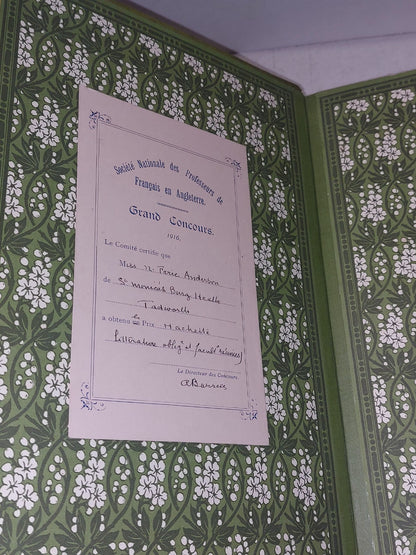 Société Nationale des Professeurs de
Français en Angleterre.
Grand Concours.
1916.
Le Comité certifie que
Miss N. Peric Anderson
de St Monica's Burgh Heath
Tadworth
a obtenu le Prix Hachette
Littérature oblig. et facult. réunies)
Le Directeur des Concours.